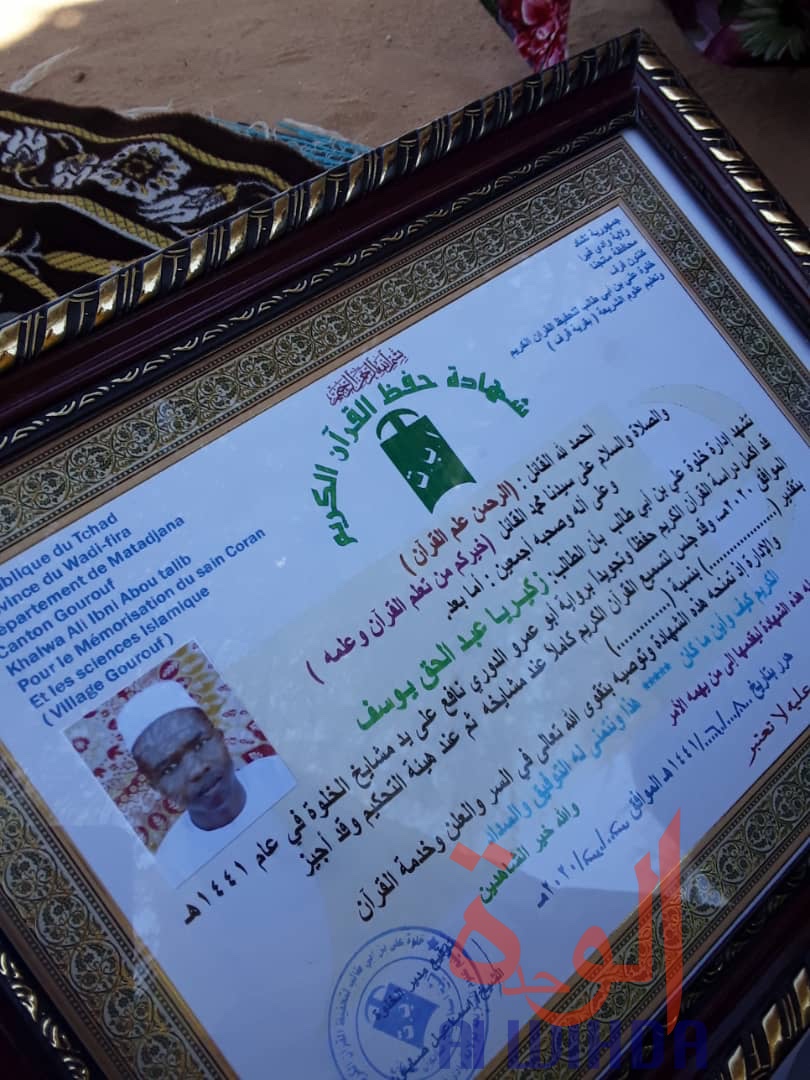 جمهورية تشاد
ولاية وادي فيرا
محافظة متجنا
كانتون قرف
خلوة علي بن أبي طالب لتحفيظ القرآن الكريم
وتعليم علوم الشريعة ( بقرية قرف )
publique du Tchad
vince du Wadi-fira
épartement de Matadjana
Canton Gourouf
Khalwa Ali Ibni Abou talib
Pour le Mémorisation du sain Coran
Et les sciences Islamique
( Village Gourouf )
بسم الله الرحمن الرحيم
شهادة حفظ القرآن الكريم
الحمد لله القائل : (الرحمن علم القرآن )
والصلاة والسلام على سيدنا محمد القائل (خيركم من تعلم القرآن وعلمه )
وعلى آله وصحبه أجمعين : أما بعد
تشهد إدارة خلوة علي بن أبي طالب بأن الطالب: زكيريا عبد الحق يوسف
قد أكمل دراسة القرآن الكريم حفظا وتجويدا برواية أبو عمرو الدوري نافع على يد مشايخ الخلوة في عام ١٤٤١هـ
الموافق ٢٠٢٠م وقد جلس لتسميع القرآن الكريم كاملا عند مشايخه ثم عند هيئة التحكيم وقد أجيز
بتقدير (..............) بنسبة (............)
والإدارة إذ تمنحه هذه الشهادة وتوصيه بتقوى الله تعالى في السر والعلن وخدمة القرآن
الكريم كيف وأين ما كان ***** هذا ونتمنى له التوفيق والسداد
والله خير الشاهدين
هذه الشهادة ليقدمها إلى من يهمه الأمر
حرر بتاريخ
١٤٤١هـ الموافق
٢٠٢٠م
عليه لا تعتبر
الوحدة
Al WIHDA